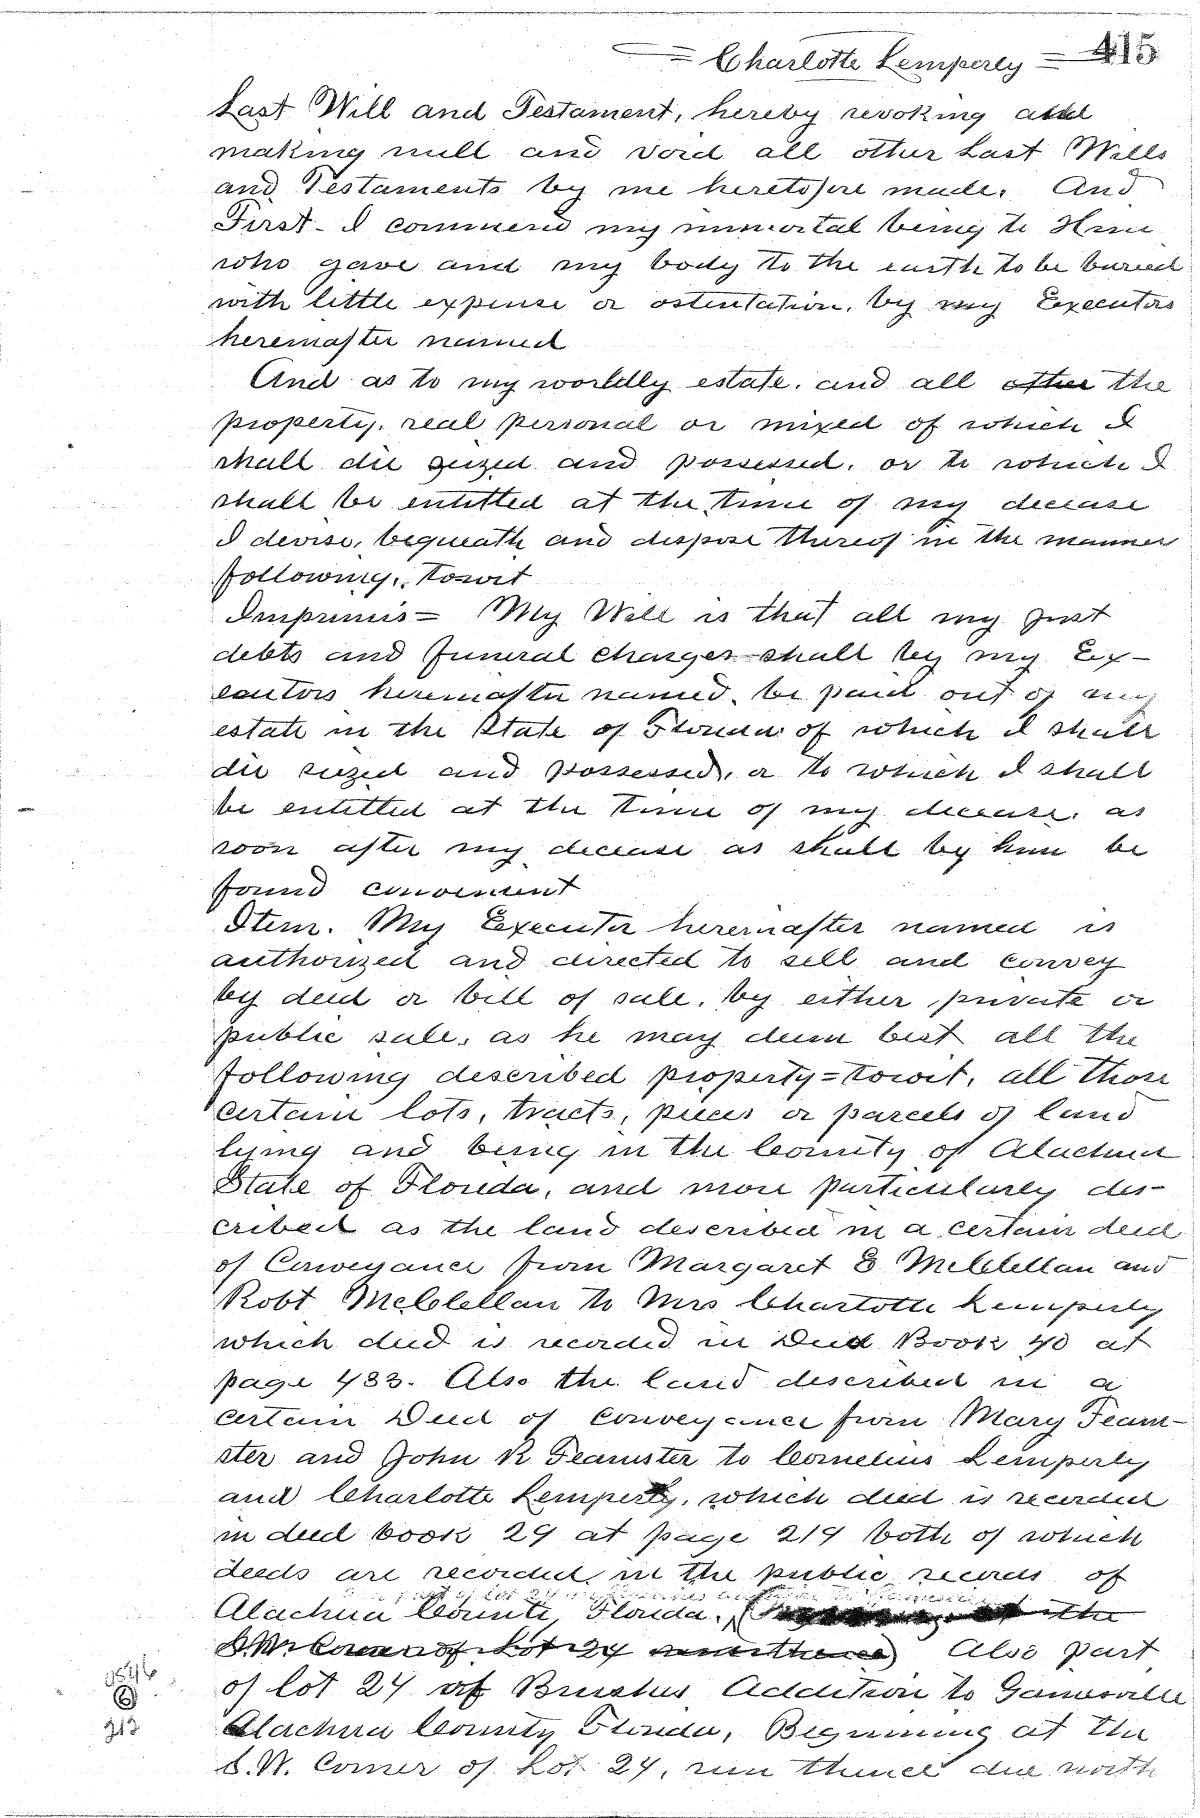 = Charlotte Lemperly = 415
Last Will and Testament, hereby revoking and
making null and void all other Last Wills
and Testaments by me heretofore made. And
First - I commend my immortal being to Him
who gave and my body to the earth to be buried
with little expense or ostentation, by my Executors
hereinafter named
And as to my worldly estate, and all other the
property, real personal or mixed of which I
shall die seized and possessed, or to which I
shall be entitled at the time of my decease
I devise, bequeath and dispose thereof in the manner
following, towit
Imprimis = My Will is that all my just
debts and funeral charges shall by my Ex-
ecutors hereinafter named, be paid out of my
estate in the State of Florida of which I shall
die seized and possessed, or to which I shall
be entitled at the time of my decease, as
soon after my decease as shall by him be
found convenient
Item. My Executor hereinafter named is
authorized and directed to sell and convey
by deed or bill of sale, by either private or
public sale, as he may deem best all the
following described property = towit, all those
certain lots, tracts, pieces or parcels of land
lying and being in the County of Alachua
State of Florida, and more particularly des-
cribed as the land described in a certain deed
of Conveyance from Margaret E McClellan and
Robt McClellan to Mrs Charlotte Lemperly
which deed is recorded in Deed Book 40 at
page 433. Also the land described in a
certain Deed of conveyance from Mary Feam-
ster and John R Feamster to Cornelius Lemperly
and Charlotte Lemperly, which deed is recorded
in deed book 29 at page 219 both of which
deeds are recorded in the public records of
Alachua County, Florida, ( at the
S.W. Corner of Lot 24 run thence) Also part
of lot 24 of Brushs Addition to Gainesville
Alachua County Florida, Beginning at the
S.W. Corner of Lot 24, run thence due north
6
213